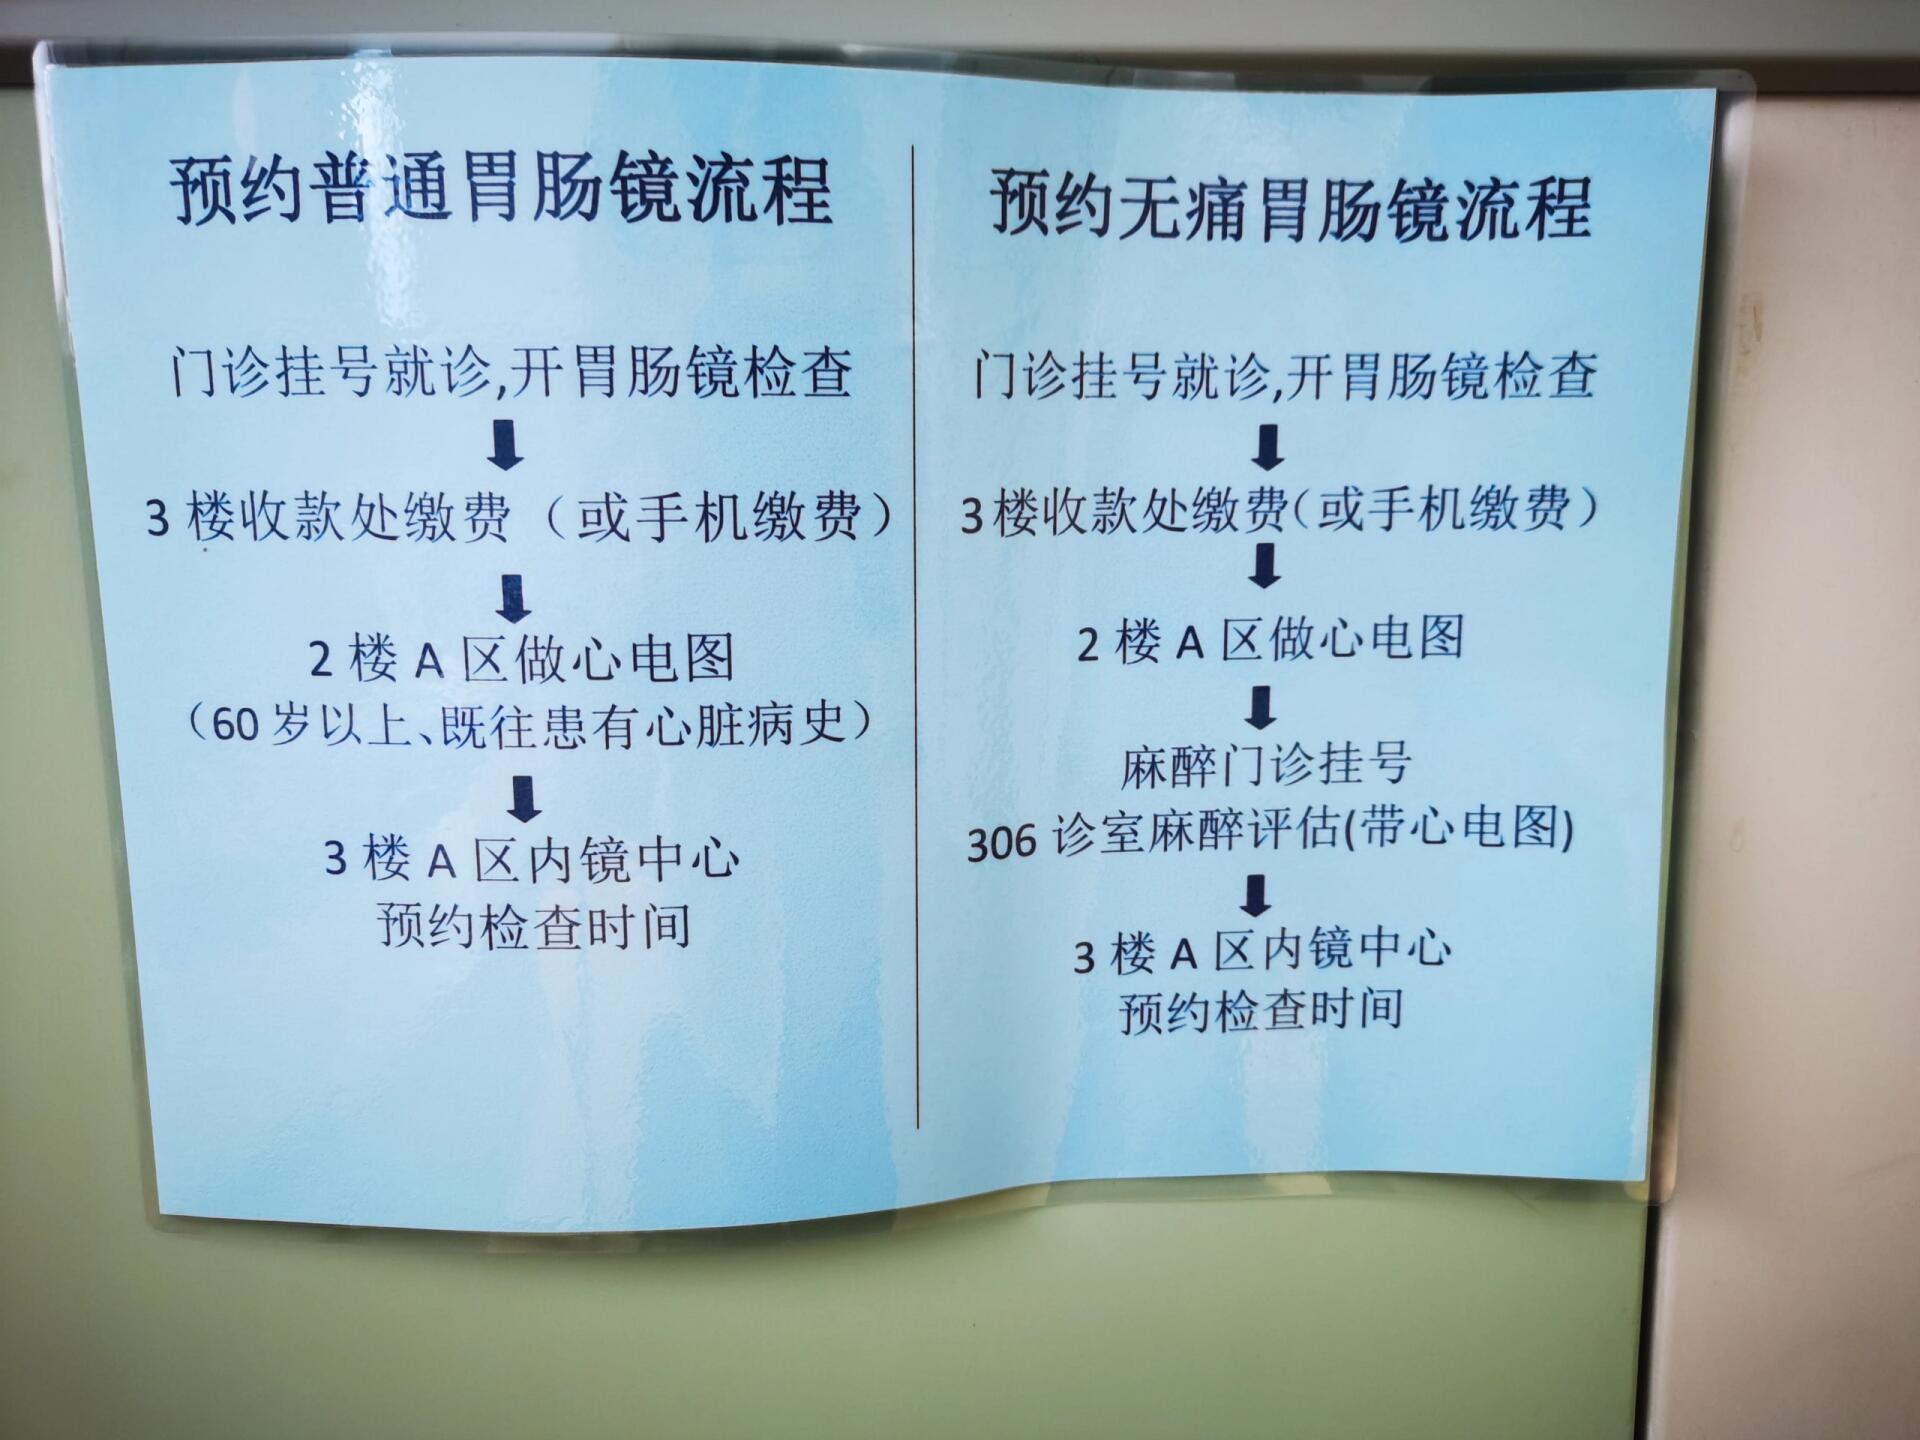 预约普通胃肠镜流程
门诊挂号就诊,开胃肠镜检查
3楼收款处缴费（或手机缴费）
2楼A区做心电图
（60岁以上、既往患有心脏病史）
3楼A区内镜中心
预约检查时间
预约无痛胃肠镜流程
门诊挂号就诊,开胃肠镜检查
3楼收款处缴费（或手机缴费）
2楼A区做心电图
麻醉门诊挂号
306诊室麻醉评估(带心电图)
3楼A区内镜中心
预约检查时间